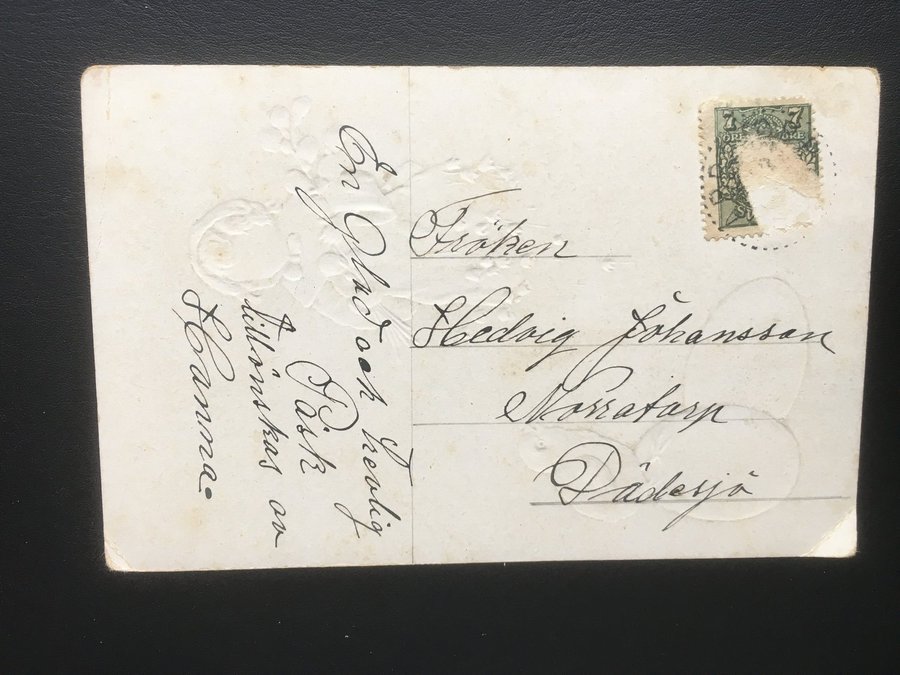 En Glad och trevlig
Påsk
tillönskas av
Hanna.
7 7
ÖRE
Fröken
Hedvig Johansson
Norratorp
Dädesjö